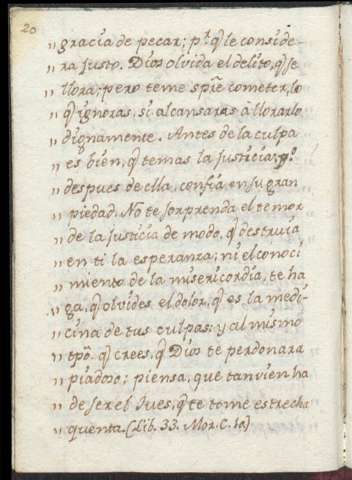 20
„ gracia de pecar; pᵃ. q̃ le conside-
„ ra justo. Dios olvida el delito, q̃ se
„ llora; pero teme spre̅ cometer, lo
„ q̃ ignoras, si alcansaràs à llorarlo
„ dignamente. Antes de la culpa
„ es bien, q̃ temas la justicia; pº.
„ despues de ella, confia en su gran
„ piedad. No te sorprenda el temor
„ de la justicia de modo, q̃ destruia
„ en ti la esperanza; ni el conoci
„ miento de la misericordia, te ha
„ ga, q̃ olvides el dolor, q̃ es la medi-
„ cina de tus culpas: y al mismo
„ tpõ. q̃ crees, q̃ Dio te perdonara
„ piadoso; piensa, que tanvien ha
„ de ser el Jues, q̃ te tome estrecha
„ quenta. (Lib. 33. Mor. C.